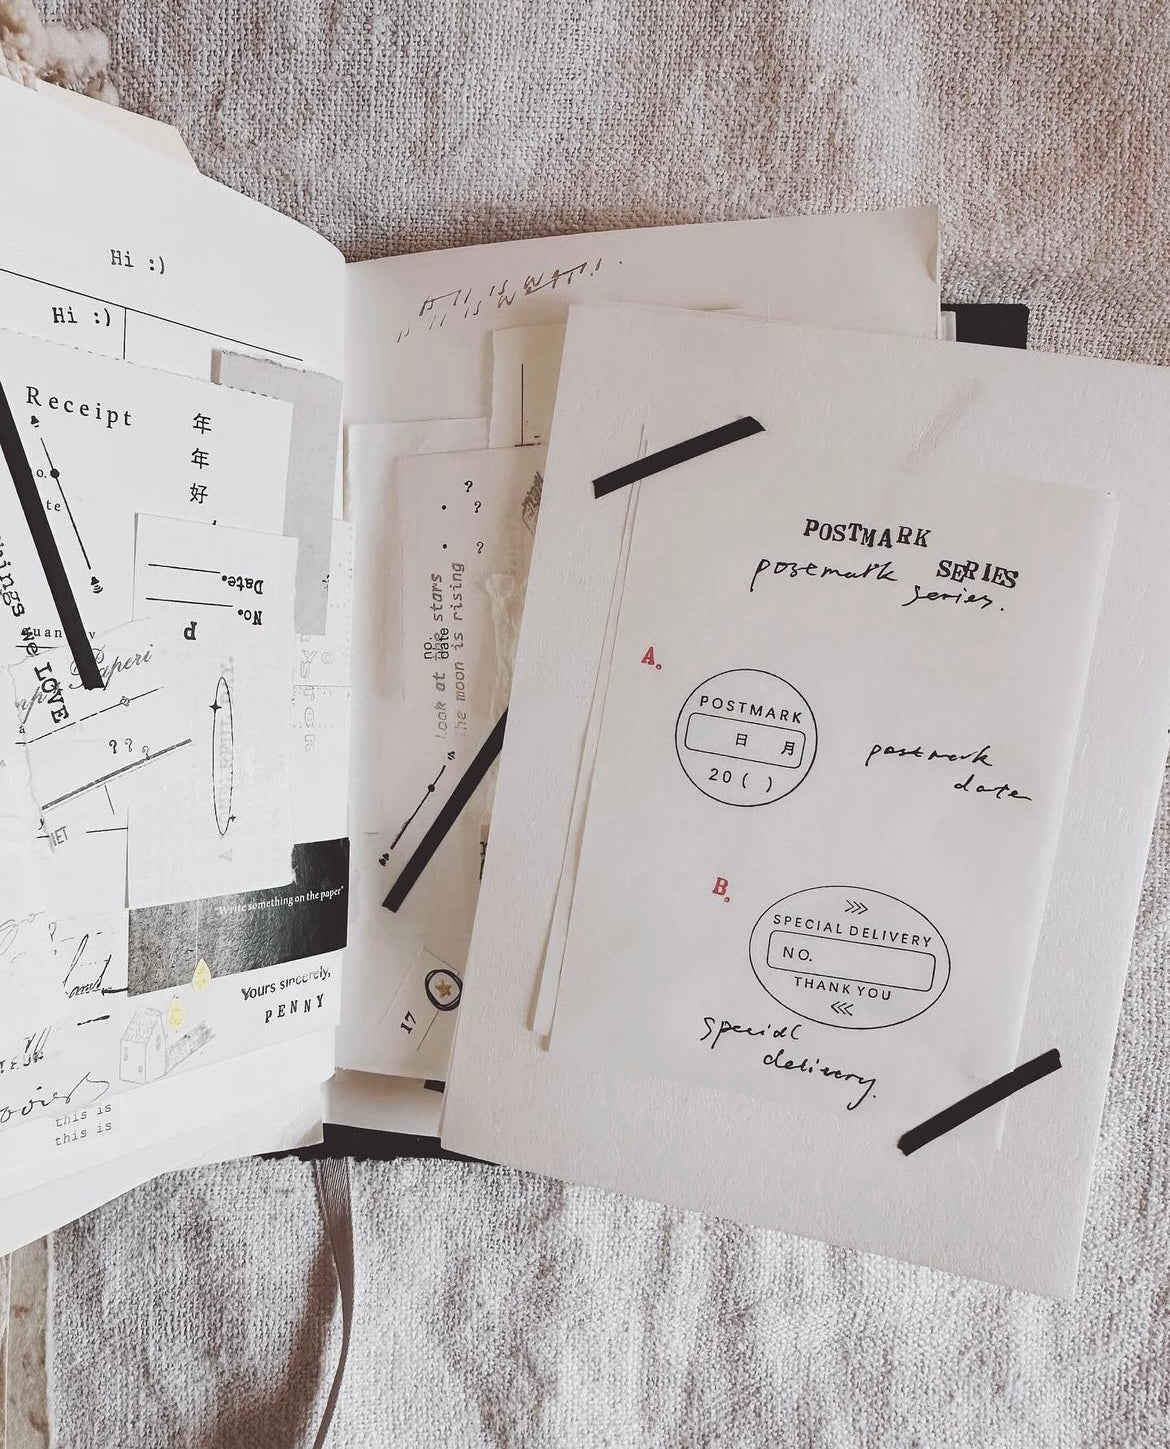 Hi :)
Hi :)
Receipt
年
年
好
o.
te
Date.
No.
p
things we LOVE
uan
Paperi
? ? ?
"Write something on the paper"
Yours sincerely,
PENNY
this is
this is
?
?
?
Look at the stars
the moon is rising
no.
date
17
POSTMARK
SERIES
postmark
series.
A.
POSTMARK
日 月
20 ( )
postmark
date
B.
SPECIAL DELIVERY
NO.
THANK YOU
special
delivery.